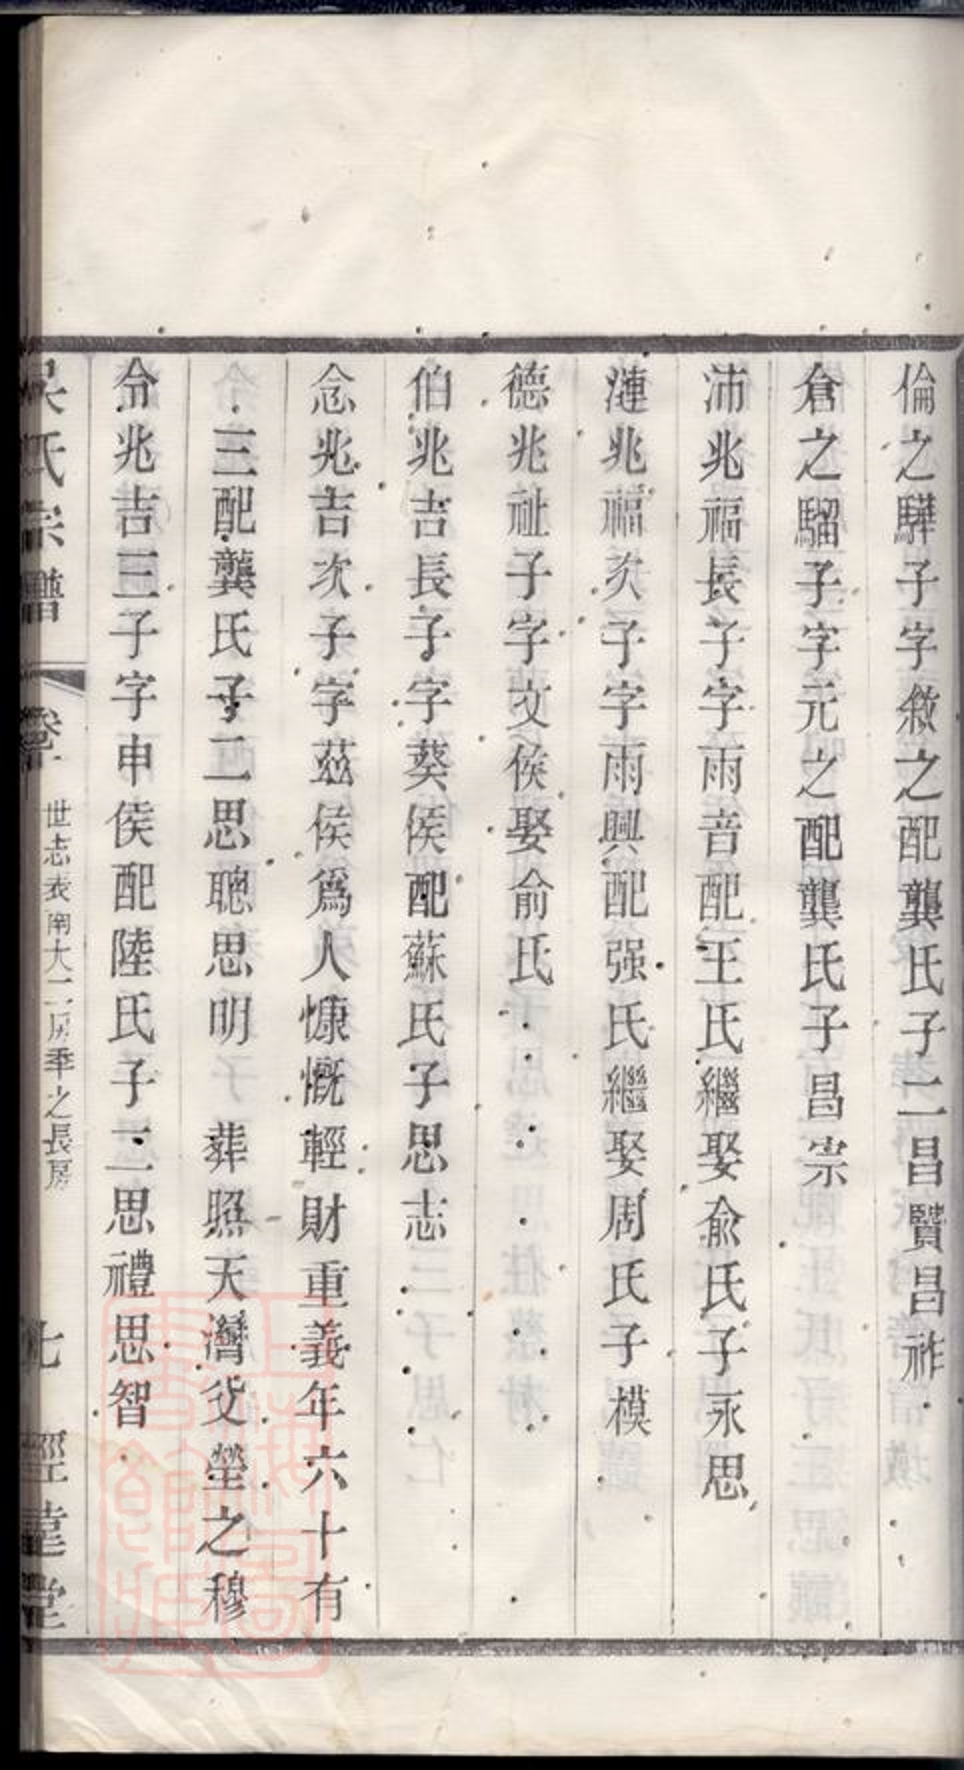 倫之驊子字敘之配龔氏子二昌賢昌祚
倉之騮子字元之配龔氏子昌崇
沛兆福長子字雨音配王氏繼娶俞氏子永思
漣兆福次子字雨興配强氏繼娶周氏子模
德兆祉子字文侯娶俞氏
伯兆吉長子字葵侯配蘇氏子思志
念兆吉次子字茲侯爲人慷慨輕財重義年六十有
三配龔氏子二思聰思明 葬照天灣父塋之穆
兆吉三子字申侯配陸氏子二思禮思智
吳氏宗譜 卷一 世志表南大二房季之長房 七